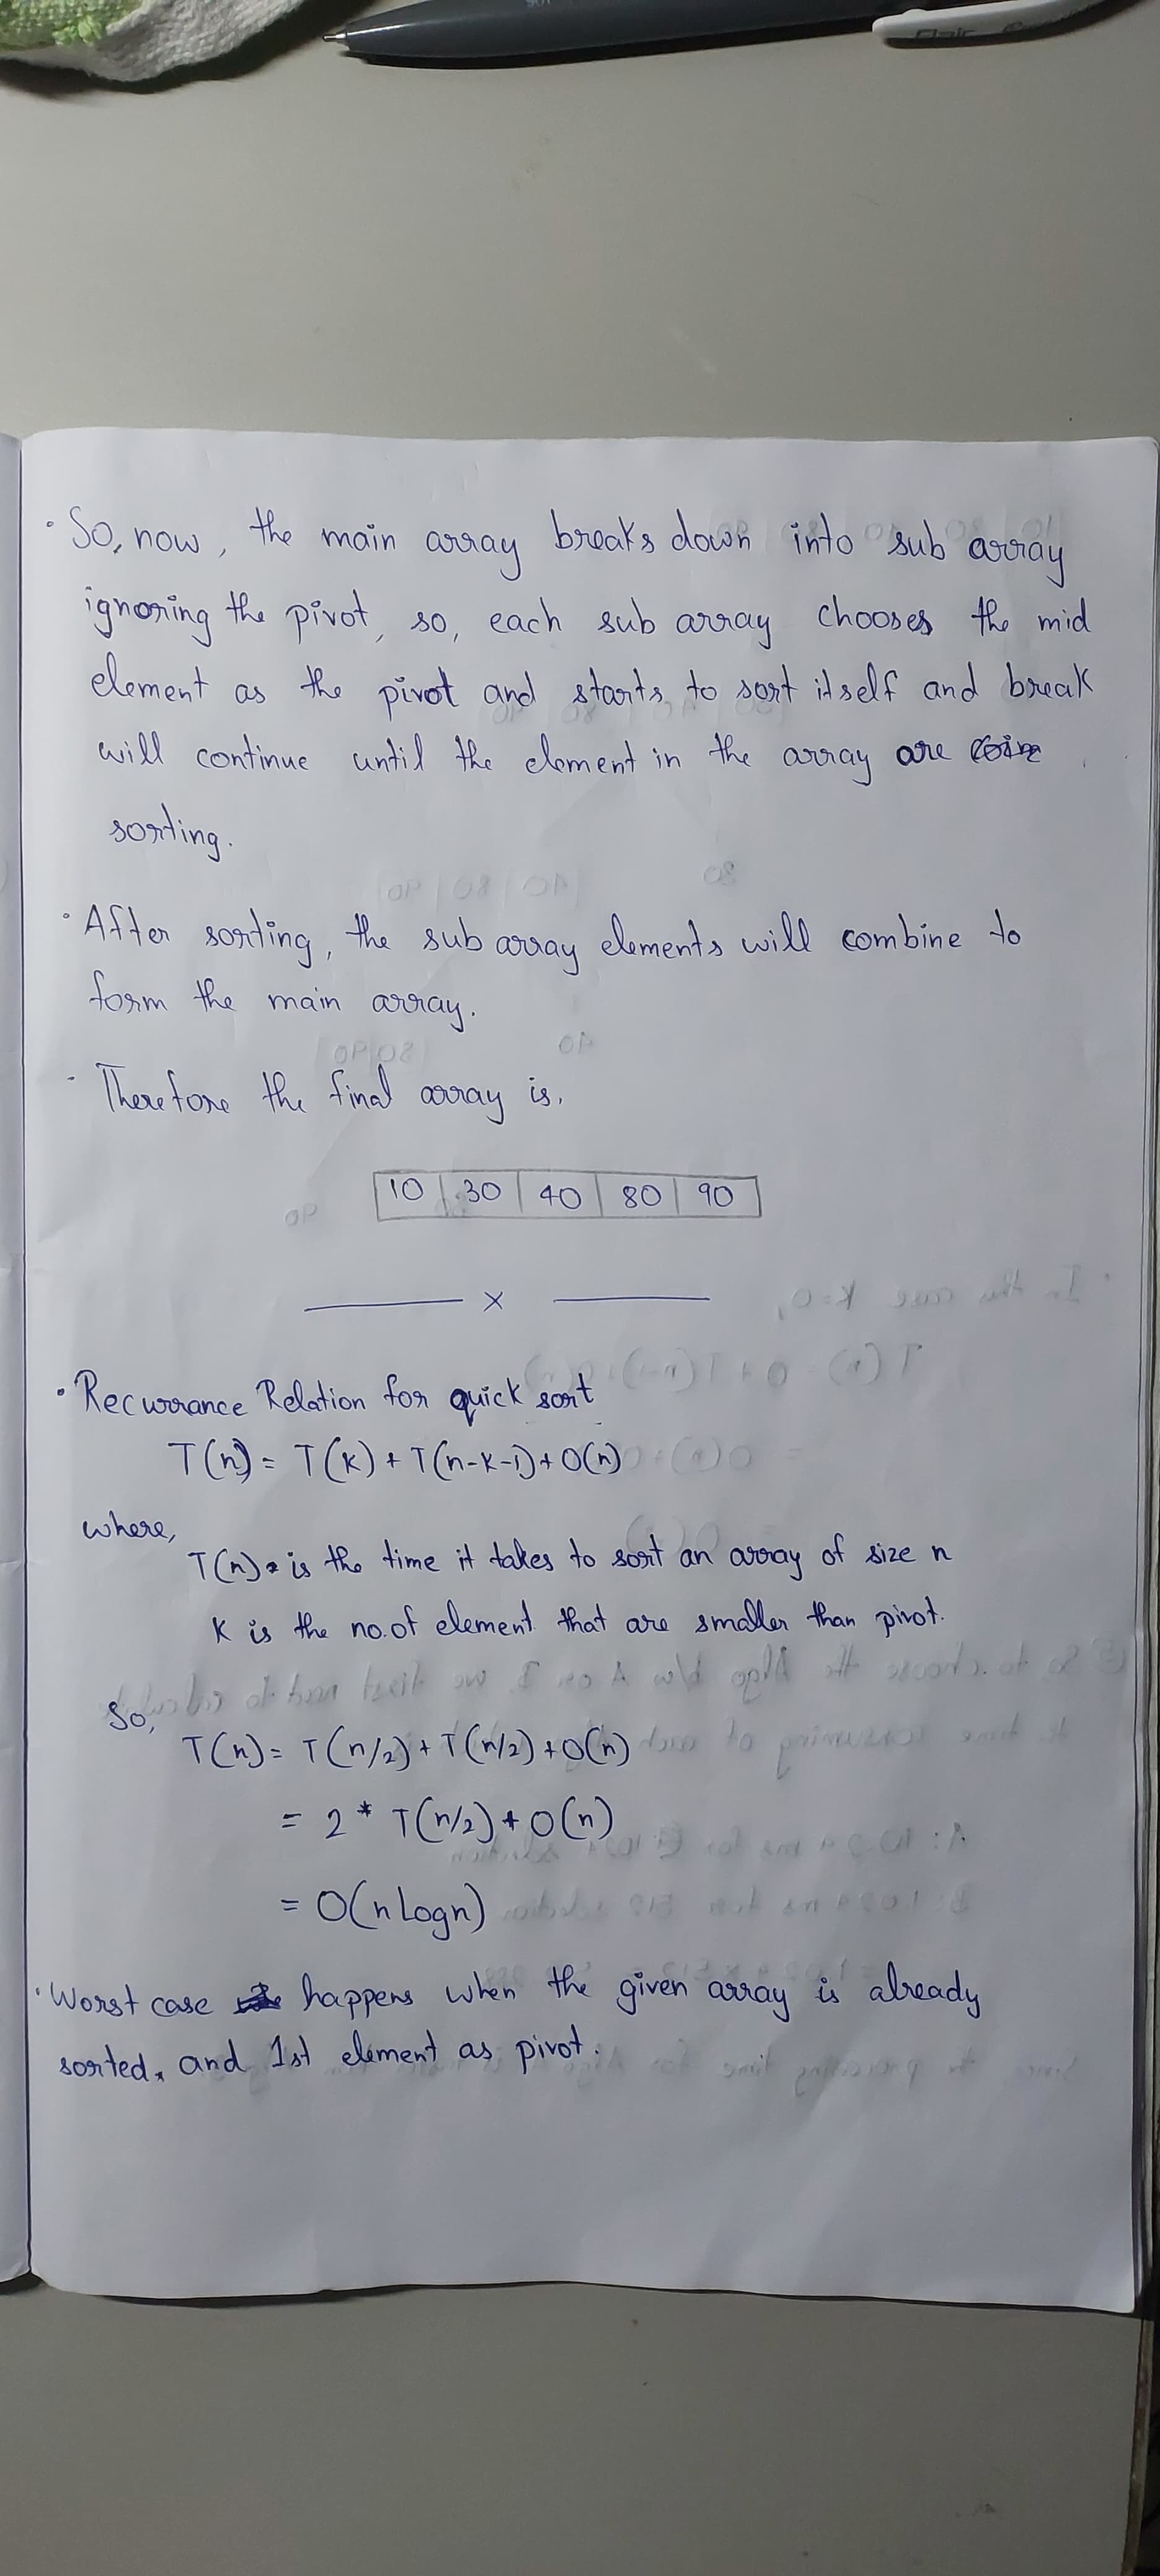 Flair
· So, now, the main array breaks down into sub array
ignoring the pivot, so, each sub array chooses the mid
element as the pivot and starts to sort itself and break
will continue until the element in the array are
sorting.
· After sorting, the sub array elements will combine to
form the main array.
· Therefore the final array is,
10 | 30 | 40 | 80 | 90
x
· Recurrance Relation for quick sort
T(n) = T(k) + T(n-k-1) + O(n)
where,
T(n) is the time it takes to sort an array of size n
K is the no. of element that are smaller than pivot.
So,
T(n) = T(n/2) + T(n/2) + O(n)
= 2 * T(n/2) + O(n)
= O(n Logn)
· Worst case happens when the given array is already
sorted, and 1st element as pivot.